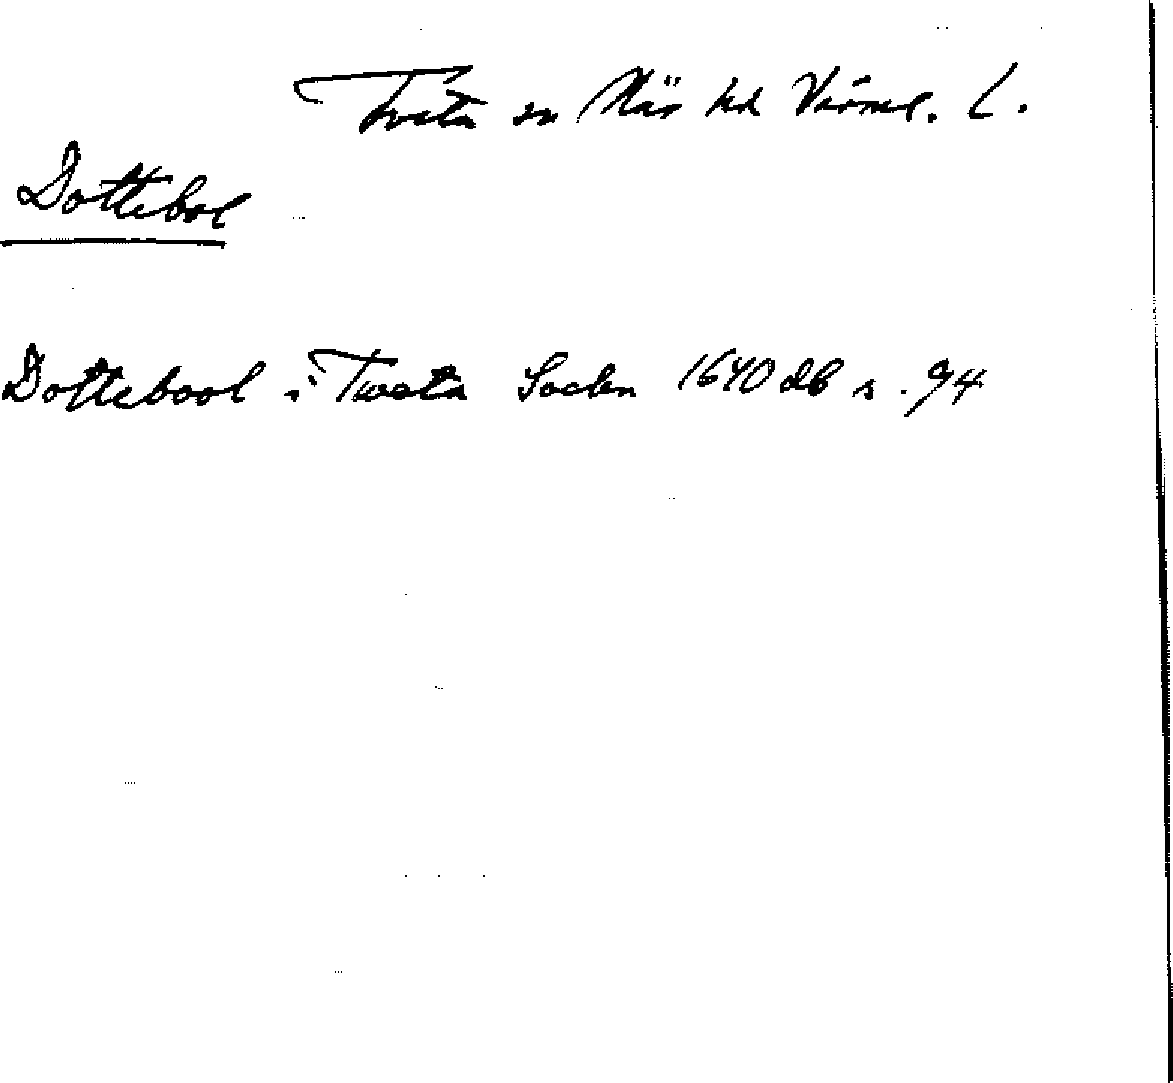 Tveta sn Näs hd Värml. L.
Dottebol
Dottebool i Tweta Socken 1640 db s. 94